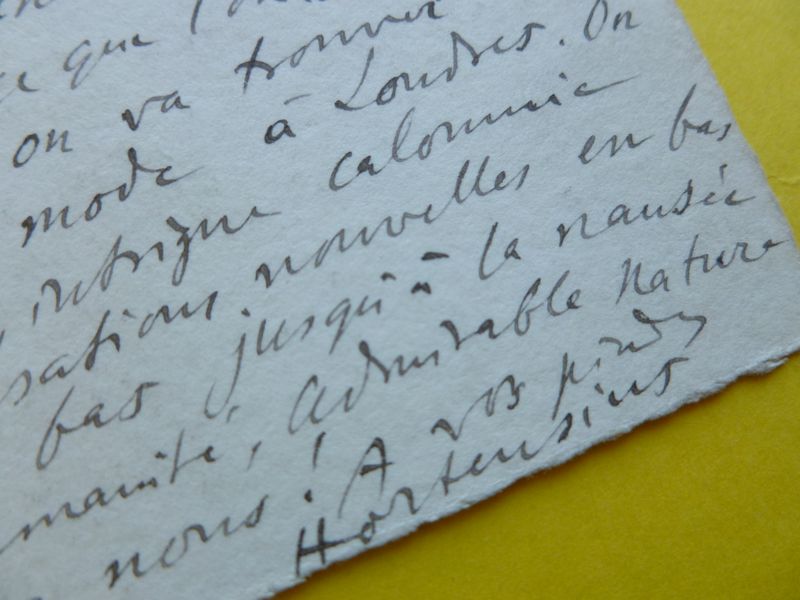 ce que l'on
on va trouver
mode à Londres. On
intrigue calomnie
sations nouvelles en bas
bas jusqu'à la nausée
manité, admirable nature
nous! A vos pieds
Hortensius